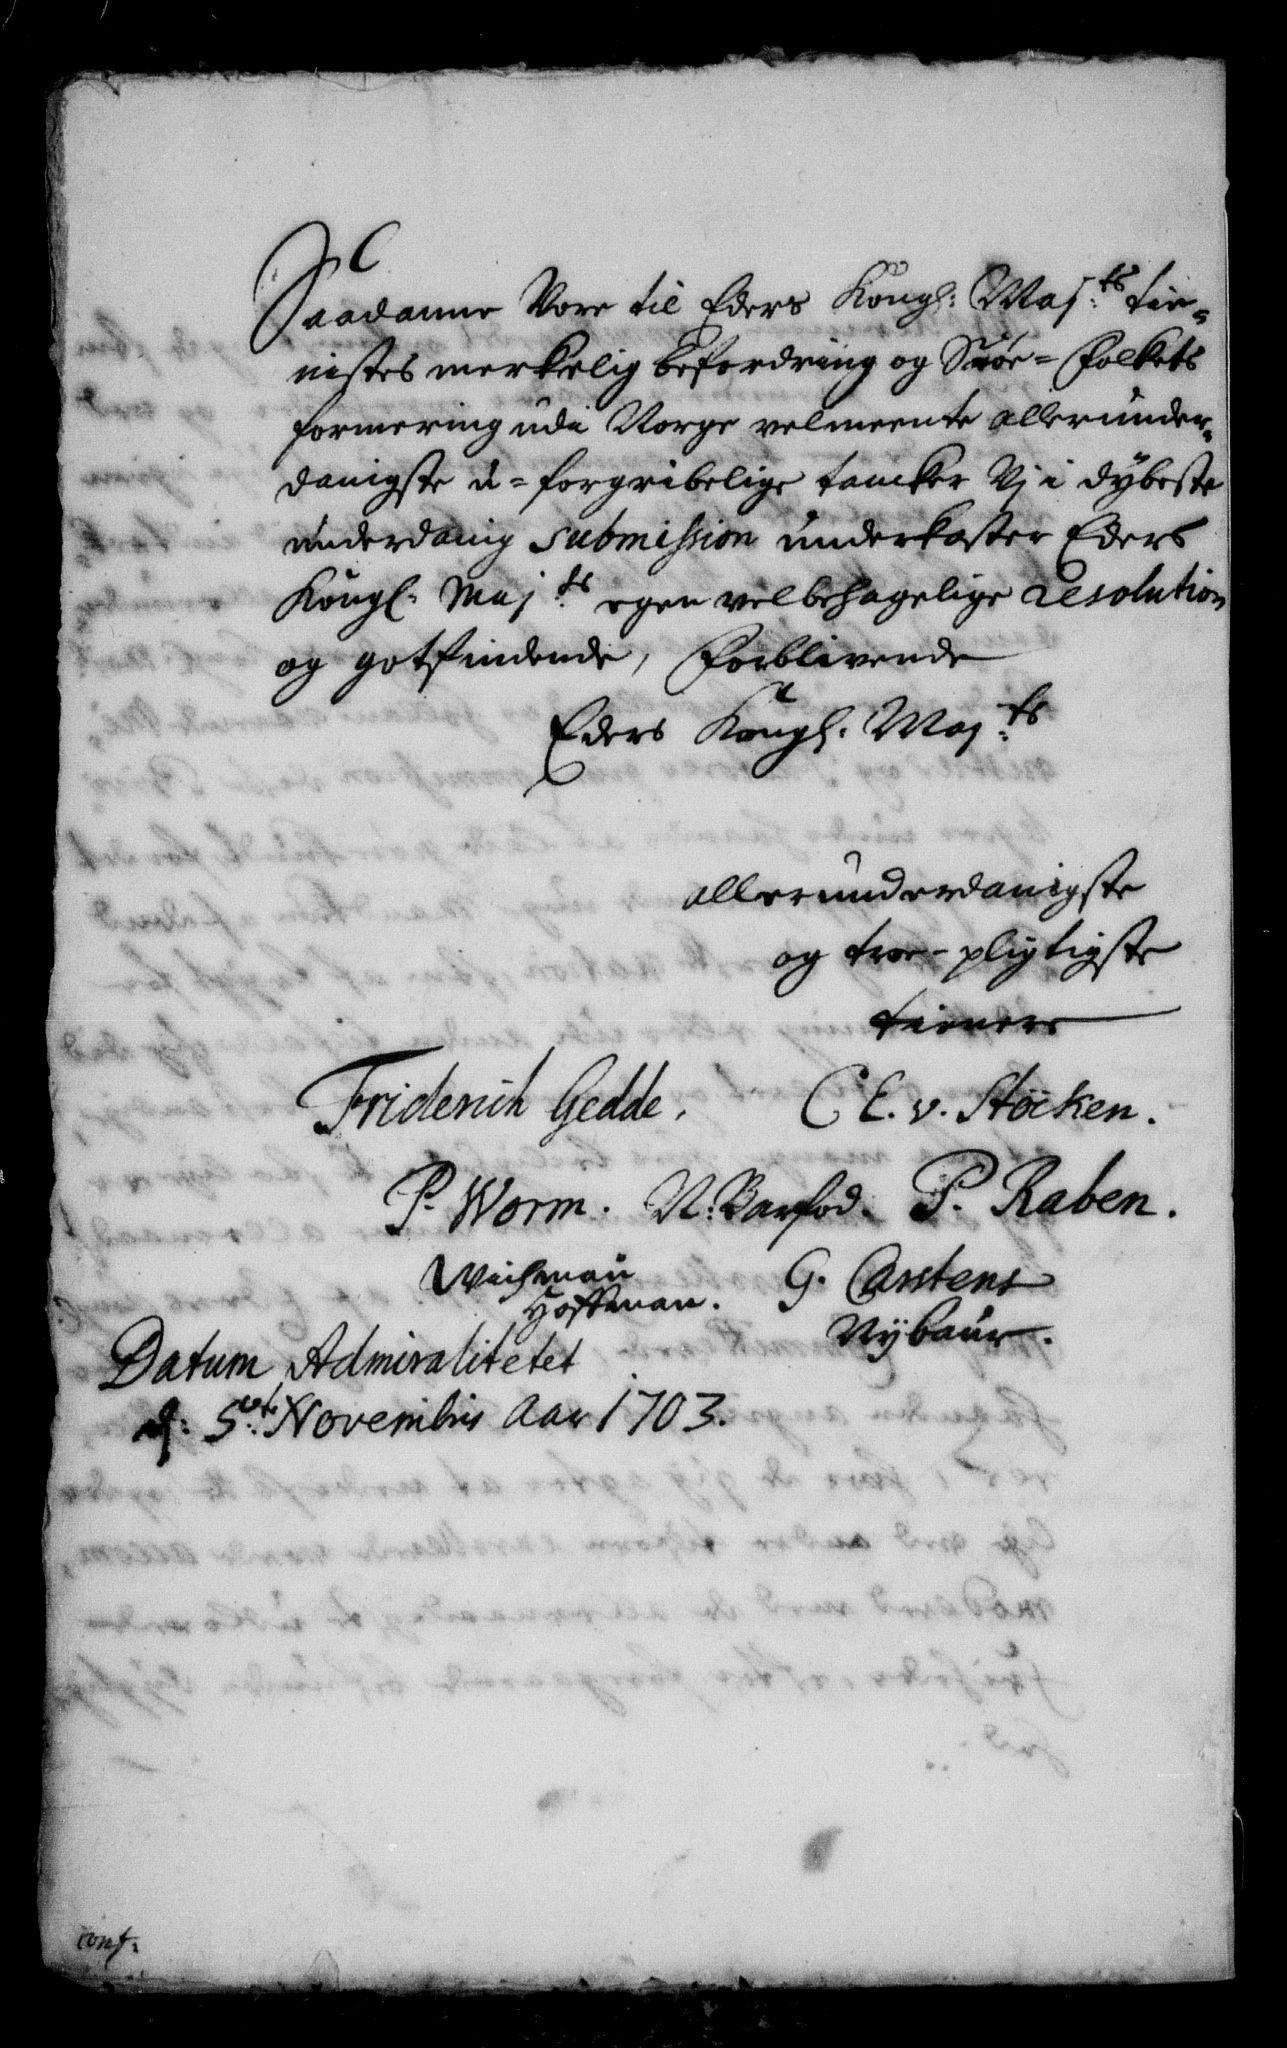 Saadanne Vore til Eders Kongl: Maj:ts tie=
nistes merkelig befordring og Søe=Folkets
formering udi Norge velmeente allerunder=
danigste u=forgribelige tancker Vj i dÿbeste
underdanig submission underkaster Eders
Kongl: Maj:ts egen velbehagelige resolution
og gotfindende, Forblivende
Eders Kongl. Maj:ts
allerunderdanigste
og troe-pligtigste
tienere
Friderich Gedde. C E. v. Stöcken.
P. Worm. N: Barfod. P. Raben.
Wichman Hoffman. G. Carstens
Nÿbaur.
Datum Admiralitetet
d: 5te Novembris Aar 1703.
conf: